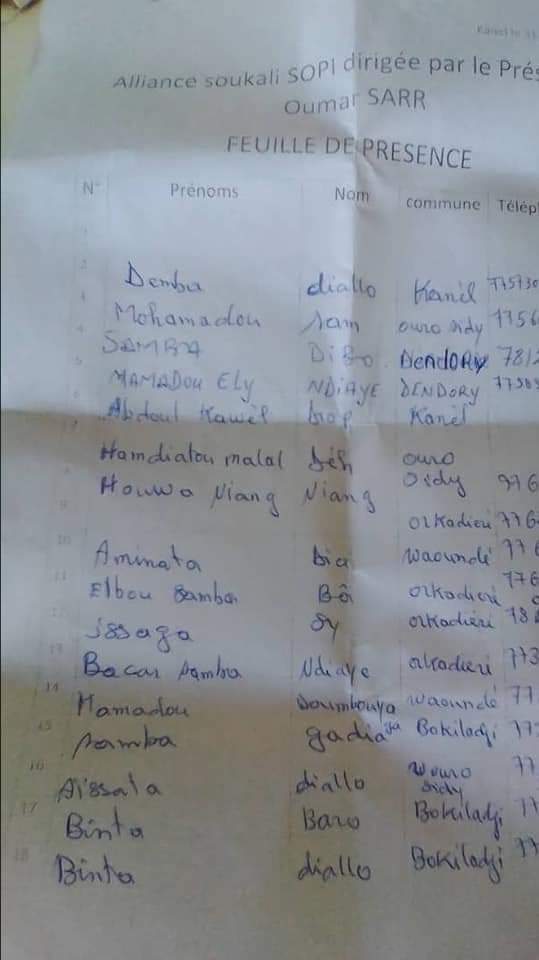 Kanel le
Alliance soukali SOPI dirigée par le Prés
Oumar SARR
FEUILLE DE PRESENCE
N° Prénoms Nom commune Téléph
1
2 Demba diallo Kanel 775730
3 Mohamadou Sam ouro sidy 7756
4 SAMBA DiBo DENDORY 7812
5 MAMADOU ELY NDIAYE DENDORY
Abdoul Kawèl Diop Kanel
Hamdiatou malal Dèh ouro sidy
Houwa Niang Niang orkadieri 776
10 Aminata Dia waoundé 776
11 Elbou Samba Bâ orkadieri 776
issaga Sy orkadiéri 78
13 Bacar Samba Ndiaye orkadieri 773
14 Mamadou Doumbouya waoundé 77
15 Samba gadiaga Bokiladji 77
16 Aissata diallo wouro sidy 77
17 Binta Baro Bokiladji 77
18 Binta diallo Bokiladji 77